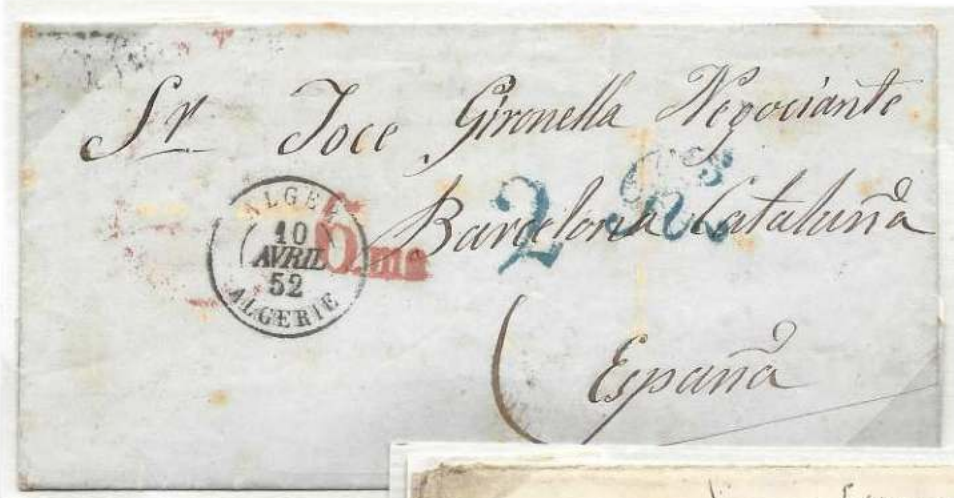 Sr. Joce Gironella Negociante
Barcelona Cataluña
España
ALGER
10
AVRIL
52
ALGERIE
2 Rs